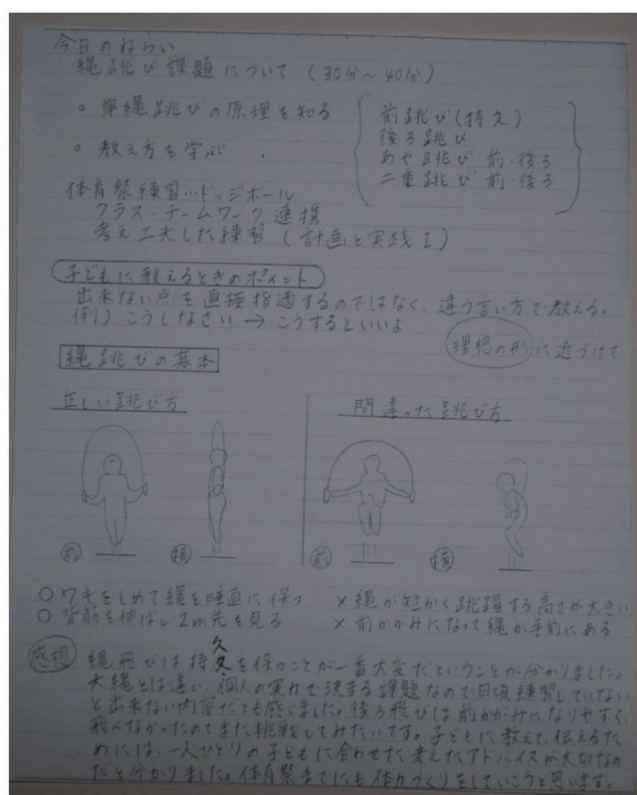 今日のねらい
縄跳び課題について (30分～40分)
。単縄跳びの原理を知る
。教え方を学ぶ
前跳び(持久)
後ろ跳び
あや跳び 前・後ろ
二重跳び 前・後ろ
体育祭練習…ドッジボール
クラス・チームワーク 連携
考え工夫した練習 (計画と実践 I)
子どもに教えるときのポイント
出来ない点を直接指適するのではなく、違う言い方で教える。
例) こうしなさい → こうするといいよ
理想の形に近づけて
縄跳びの基本
正しい跳び方
間違った跳び方
前 横
前 横
○ワキをしめて縄を垂直に保つ
○背筋を伸ばし2m先を見る
×縄が短かく跳躍する高さが大きい
×前かがみになって縄が手前にある
感想 縄飛びは持久を保つことが一番大変だということが分かりました。
大縄とは違い、個人の実力で決まる課題なので日頃練習していない
と出来ない内容だとも感じました。後ろ飛びは前かがみになりやすく、
飛べなかったのでまた挑戦してみたいです。子どもに教えて、伝えるた
めには、一人ひとりの子どもに合わせた考えたアドバイスが大切なの
だと分かりました。体育祭までにも体力づくりをしていこうと思います。